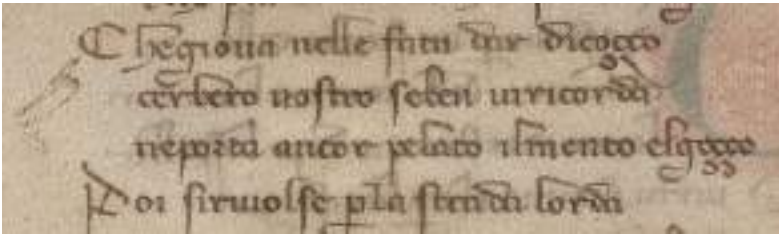 C hegiova nelle fata dar dicocco
cerbero nostro seben uiricorda
neporta ancor pelato ilmento elgocço
P oi siriuolse pla strada lorda